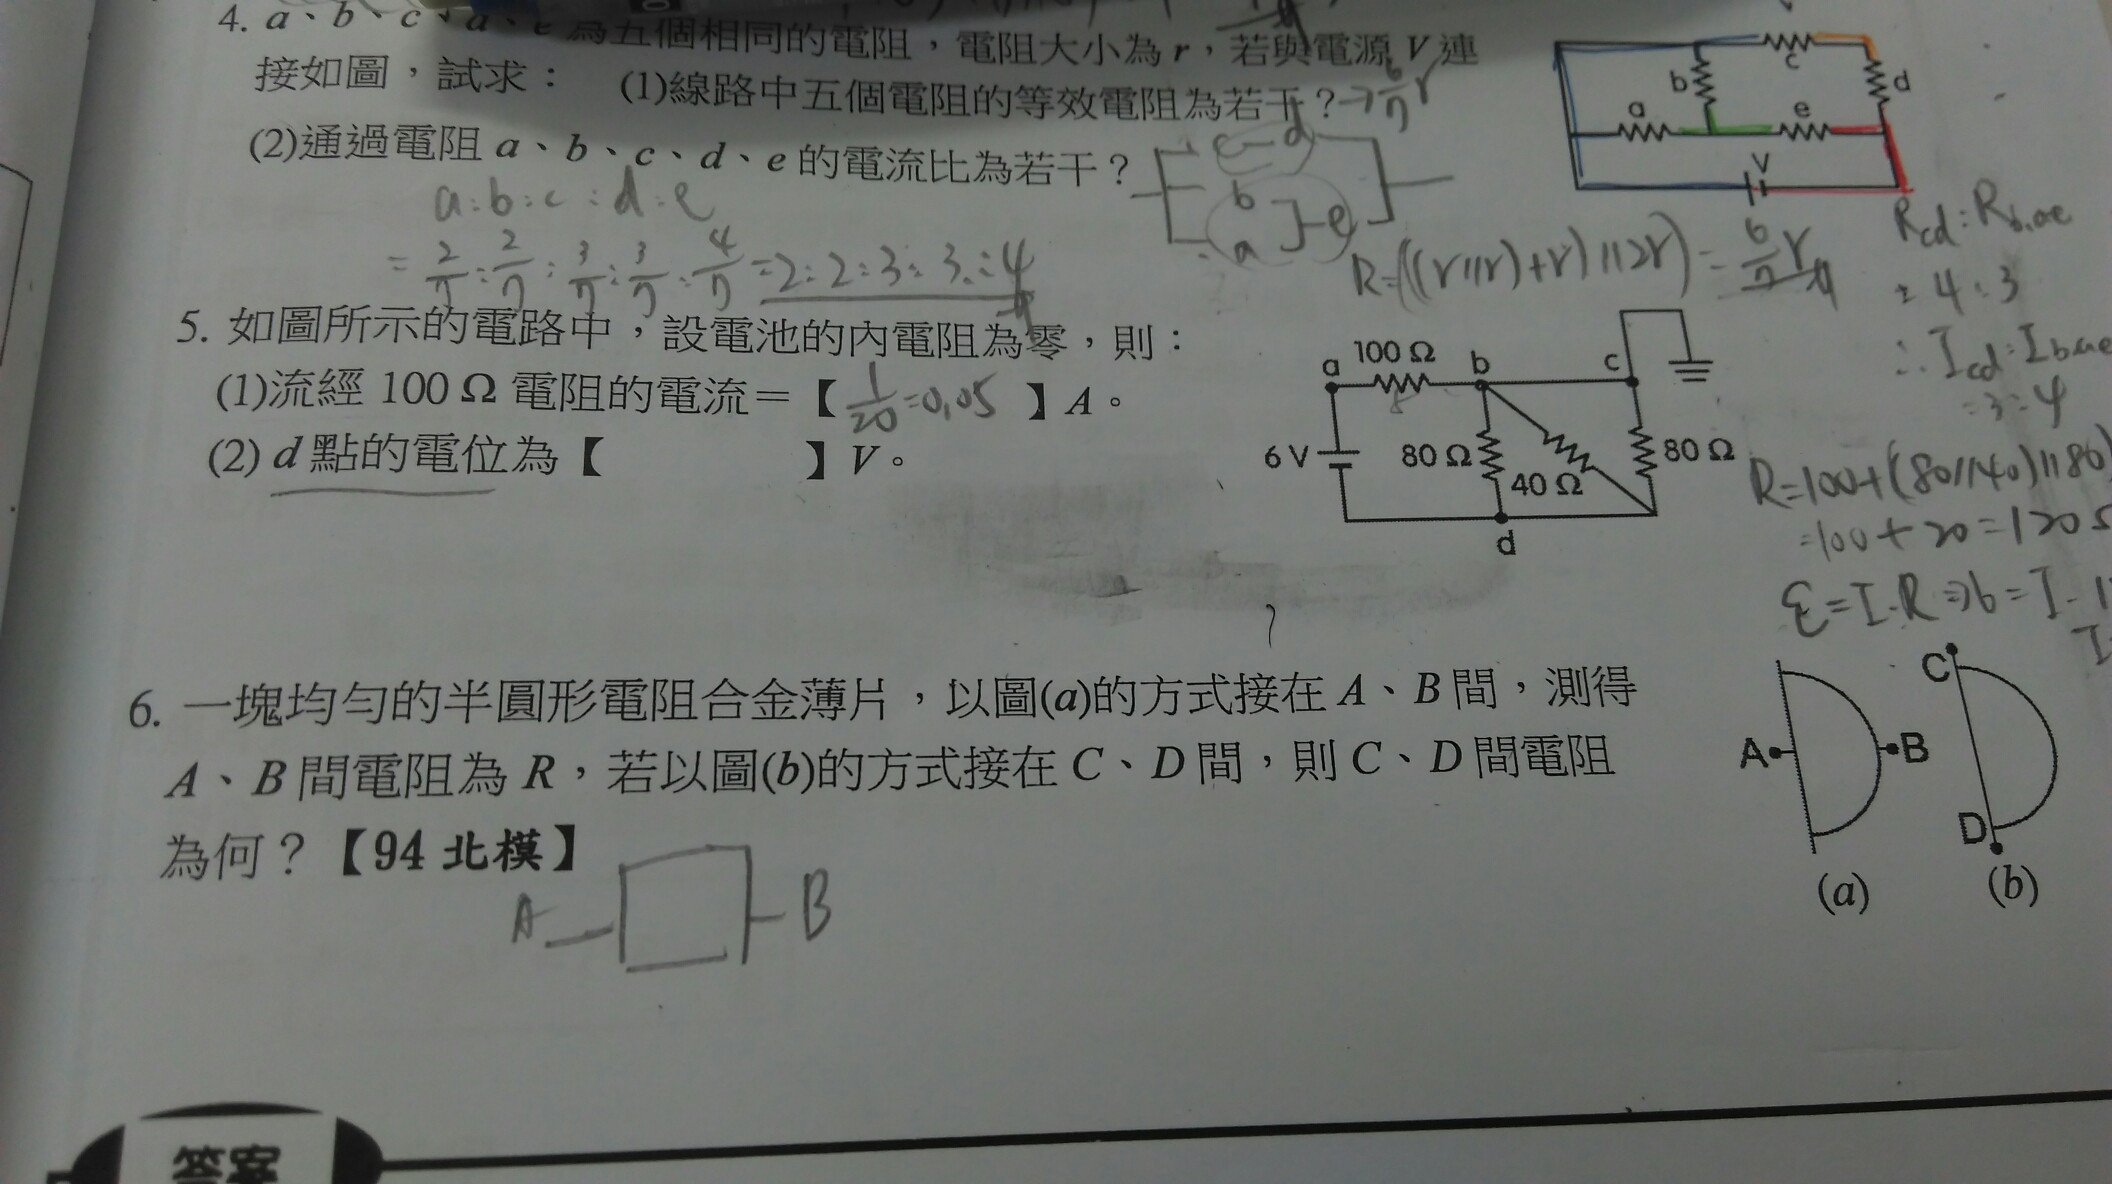 4. a、b、c、d、e 為五個相同的電阻，電阻大小為 r，若與電源 V 連
接如圖，試求： (1)線路中五個電阻的等效電阻為若干？→ 6/7 r
(2)通過電阻 a、b、c、d、e 的電流比為若干？
a:b:c:d:e
= 2/7 : 2/7 : 3/7 : 3/7 : 4/7 = 2:2:3:3:4
c d
b
a e
R=((r||r)+r)||2r) = 6/7 r
b c d
a e
V
Rcd : Rb,ae
= 4:3
∴ Icd : Ibae
= 3:4
5. 如圖所示的電路中，設電池的內電阻為零，則：
(1)流經 100 Ω 電阻的電流＝【 1/20 =0.05 】A。
(2) d 點的電位為【 】V。
a 100 Ω b c
6 V 80 Ω 40 Ω 80 Ω
d
R=100+(80//40)//80)
=100+20=120
ε=I·R ⇒ 6=I·1
6. 一塊均勻的半圓形電阻合金薄片，以圖(a)的方式接在 A、B 間，測得
A、B 間電阻為 R，若以圖(b)的方式接在 C、D 間，則 C、D 間電阻
為何？【94 北模】
A B
C
A B
D
(a) (b)
答案